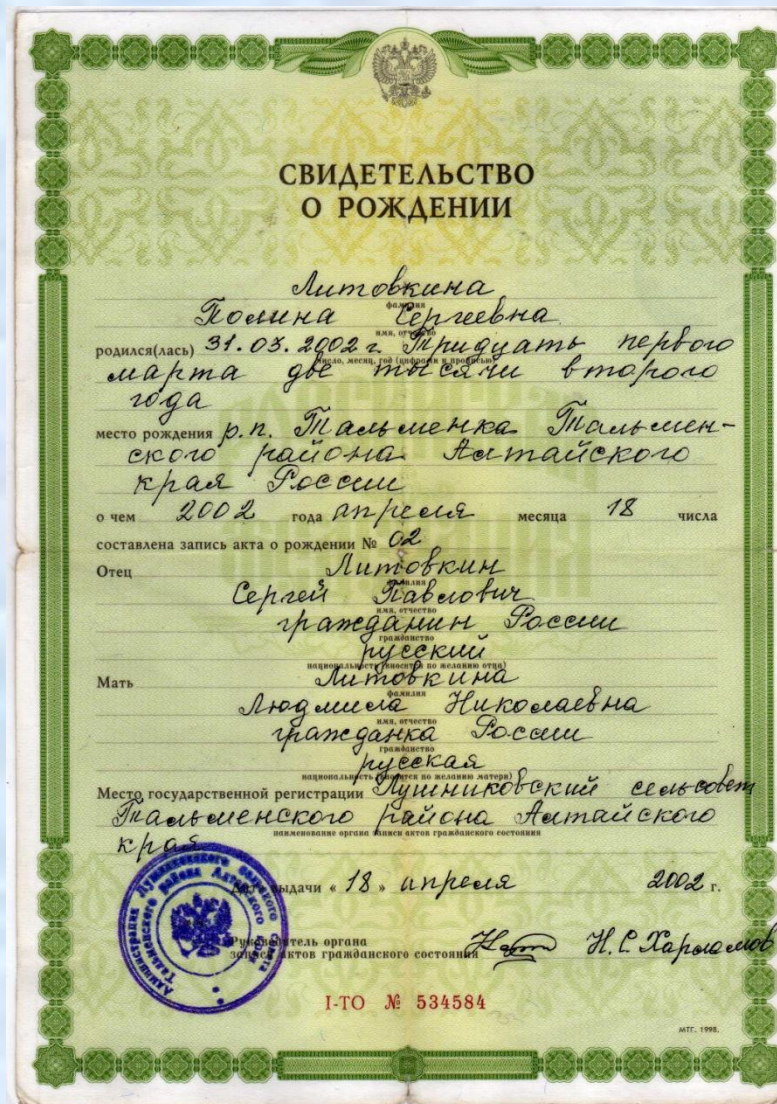 СВИДЕТЕЛЬСТВО
О РОЖДЕНИИ
Литовкина
фамилия
Полина Сергеевна
имя, отчество
родился(лась) 31.03.2002 г. Тридцать первого
число, месяц, год (цифрами и прописью)
марта две тысячи второго
года
место рождения р.п. Тальменка Тальмен-
ского района Алтайского
края России
о чем 2002 года апреля месяца 18 числа
составлена запись акта о рождении № 02
Отец Литовкин
фамилия
Сергей Павлович
имя, отчество
гражданин России
гражданство
русский
национальность (вносится по желанию отца)
Мать Литовкина
фамилия
Людмила Николаевна
имя, отчество
гражданка России
гражданство
русская
национальность (вносится по желанию матери)
Место государственной регистрации Лушниковский сельсовет
Тальменского района Алтайского
наименование органа записи актов гражданского состояния
края
Дата выдачи « 18 » апреля 2002 г.
Руководитель органа
записи актов гражданского состояния Н.С. Харламов
I-ТО № 534584
МТГ. 1998.
Администрация Лушниковского сельского Совета
Тальменского района Алтайского края